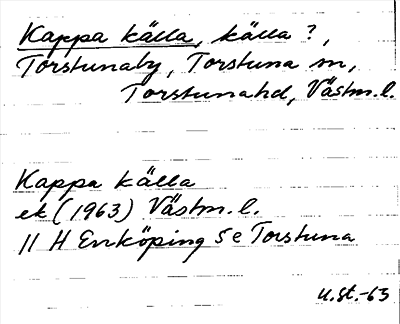 Kappa källa, källa?,
Torstunaby, Torstuna sn,
Torstunahd, Västm.l.
Kappa källa
ek (1963) Västm.l.
11 H Enköping 5e Torstuna
U.St.-63